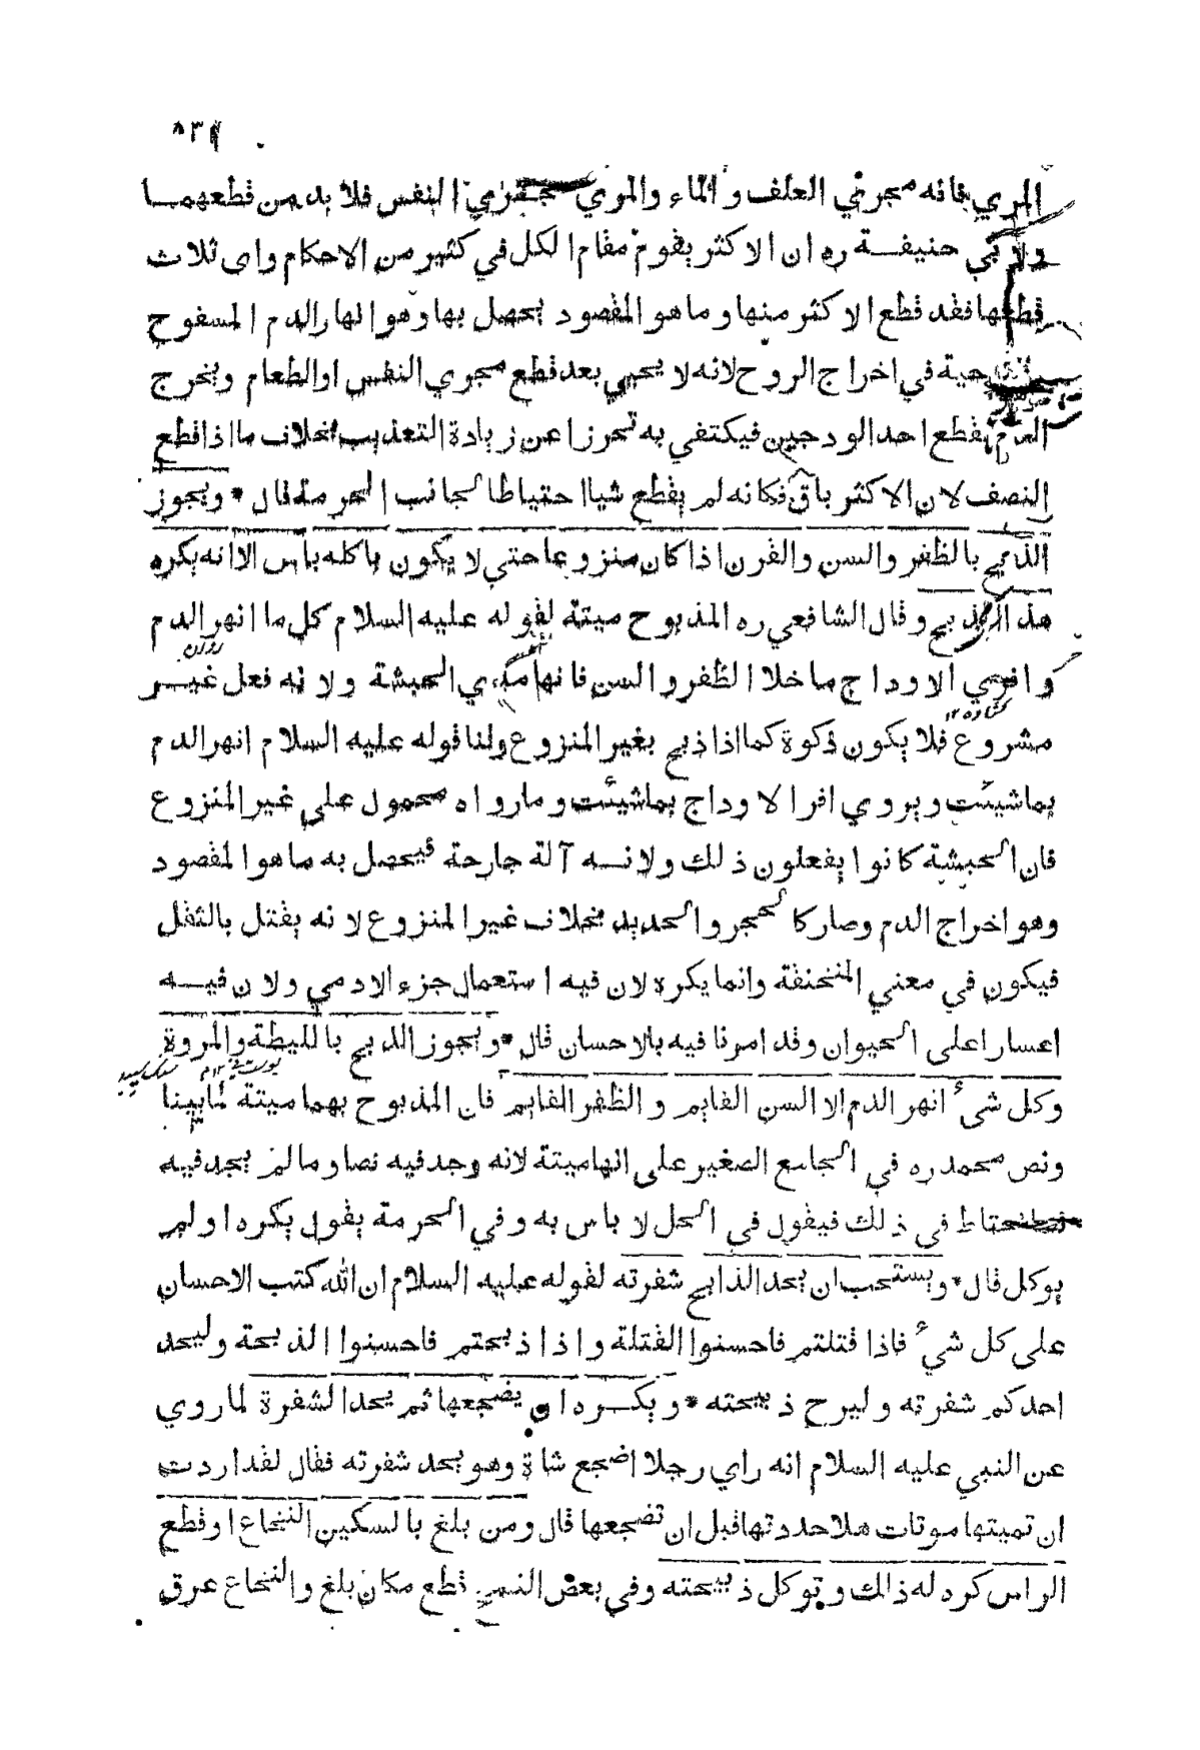 ٨٣٦
المري فانه مجري العلف والماء والمري مجري النفس فلا بد من قطعهما
ولابي حنيفة ره ان الاكثر يقوم مقام الكل في كثير من الاحكام واي ثلاث
قطعها فقد قطع الاكثر منها وما هو المقصود يحصل بها وهو انهار الدم المسفوح
حية في اخراج الروح لانه لا يحيي بعد قطع مجري النفس او الطعام ويخرج
الدم بقطع احد الودجين فيكتفي به تحرزا عن زيادة التعذيب بخلاف ما اذا قطع
النصف لان الاكثر باق فكانه لم يقطع شيا احتياطا لجانب الحرمة قال * ويجوز
الذبح بالظفر والسن والقرن اذا كان منزوعا حتي لا يكون باكله باس الا انه يكره
هذا الذبح وقال الشافعي ره المذبوح ميتة لقوله عليه السلام كل ما انهر الدم
وافري الاوداج ما خلا الظفر والسن فانهما مدي الحبشة ولانه فعل غير
مشروع فلا يكون ذكوة كما اذا ذبح بغير المنزوع ولنا قوله عليه السلام انهر الدم
بما شيئت ويروي افرا لاوداج بما شيئت وما رواه محمول علي غير المنزوع
فان الحبشة كانوا يفعلون ذلك ولانه آلة جارحة فيحصل به ما هو المقصود
وهو اخراج الدم وصار كالحجر والحديد بخلاف غير المنزوع لانه يقتل بالثقل
فيكون في معني المنخنقة وانما يكره لان فيه استعمال جزء الادمي ولان فيه
اعسارا علي الحيوان وقد امرنا فيه بالاحسان قال * ويجوز الذبح بالليطة والمروة
وكل شيء انهر الدم الا السن القايم والظفر القايم فان المذبوح بهما ميتة لما بينا
ونص محمد ره في الجامع الصغير علي انها ميتة لانه وجد فيه نصا وما لم يجد فيه
يحتاط في ذلك فيقول في الحل لا باس به وفي الحرمة يقول يكره او لم
يوكل قال * ويستحب ان يحد الذابح شفرته لقوله عليه السلام ان الله كتب الاحسان
علي كل شيء فاذا قتلتم فاحسنوا القتلة واذا ذبحتم فاحسنوا الذبحة وليحد
احدكم شفرته وليرح ذبيحته * ويكره ان يضجعها ثم يحد الشفرة لما روي
عن النبي عليه السلام انه راي رجلا اضجع شاة وهو يحد شفرته فقال لقد اردت
ان تميتها موتات هلا حددتها قبل ان تضجعها قال ومن بلغ بالسكين النخاع او قطع
الراس كره له ذالك وتوكل ذبيحته وفي بعض النسخ قطع مكان بلغ والنخاع عرق